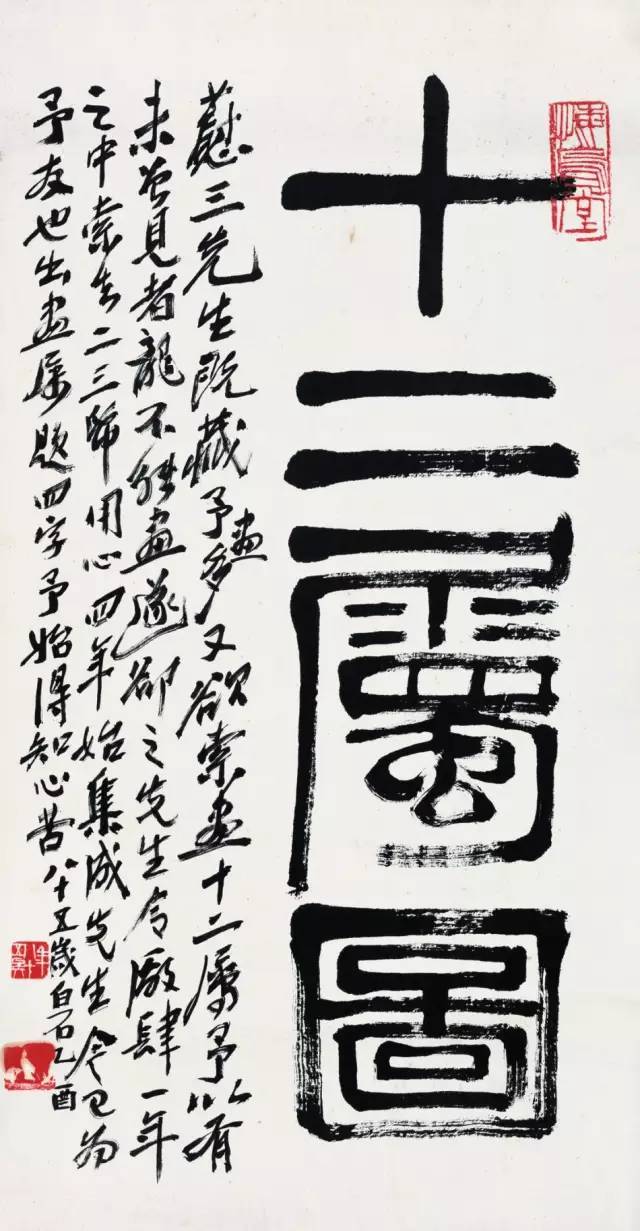 十二屬圖
悔烏堂
三先生既藏予畫多又欲索畫十二屬予以有
未曾見者龍不能畫遂卻之先生令廠肆一年
之中索去二三幀用心四年始集成先生今已為
予友也出畫屬題四字予始得知心苦八十五歲白石乙酉